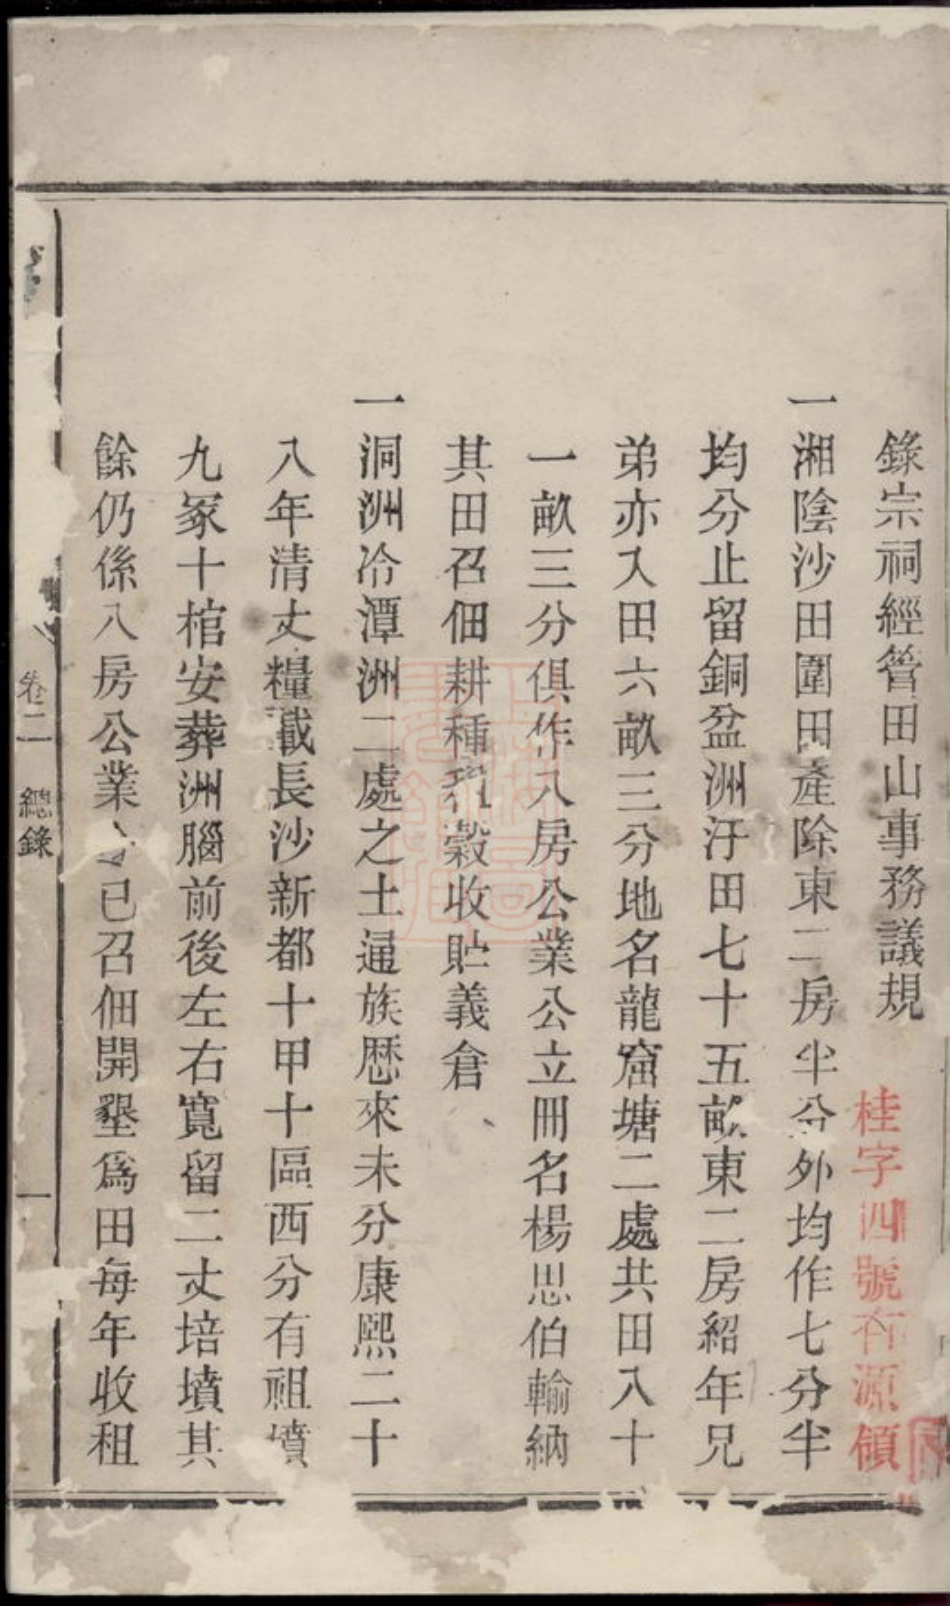 錄宗祠經管田山事務議規
桂字四號有源領
一湘陰沙田圍田產除東二房半分外均作七分半
均分止留銅盆洲汙田七十五畝東二房紹年兄
弟亦入田六畝三分地名龍窟塘二處共田八十
一畝三分俱作八房公業公立冊名楊思伯輸納
其田召佃耕種租穀收貯義倉
一洞洲冷潭洲二處之土通族歷來未分康熙二十
八年清丈糧載長沙新都十甲十區西分有祖墳
九冢十棺安葬洲腦前後左右寬留二丈培墳其
餘仍係八房公業今已召佃開墾爲田每年收租
卷二 總錄 一